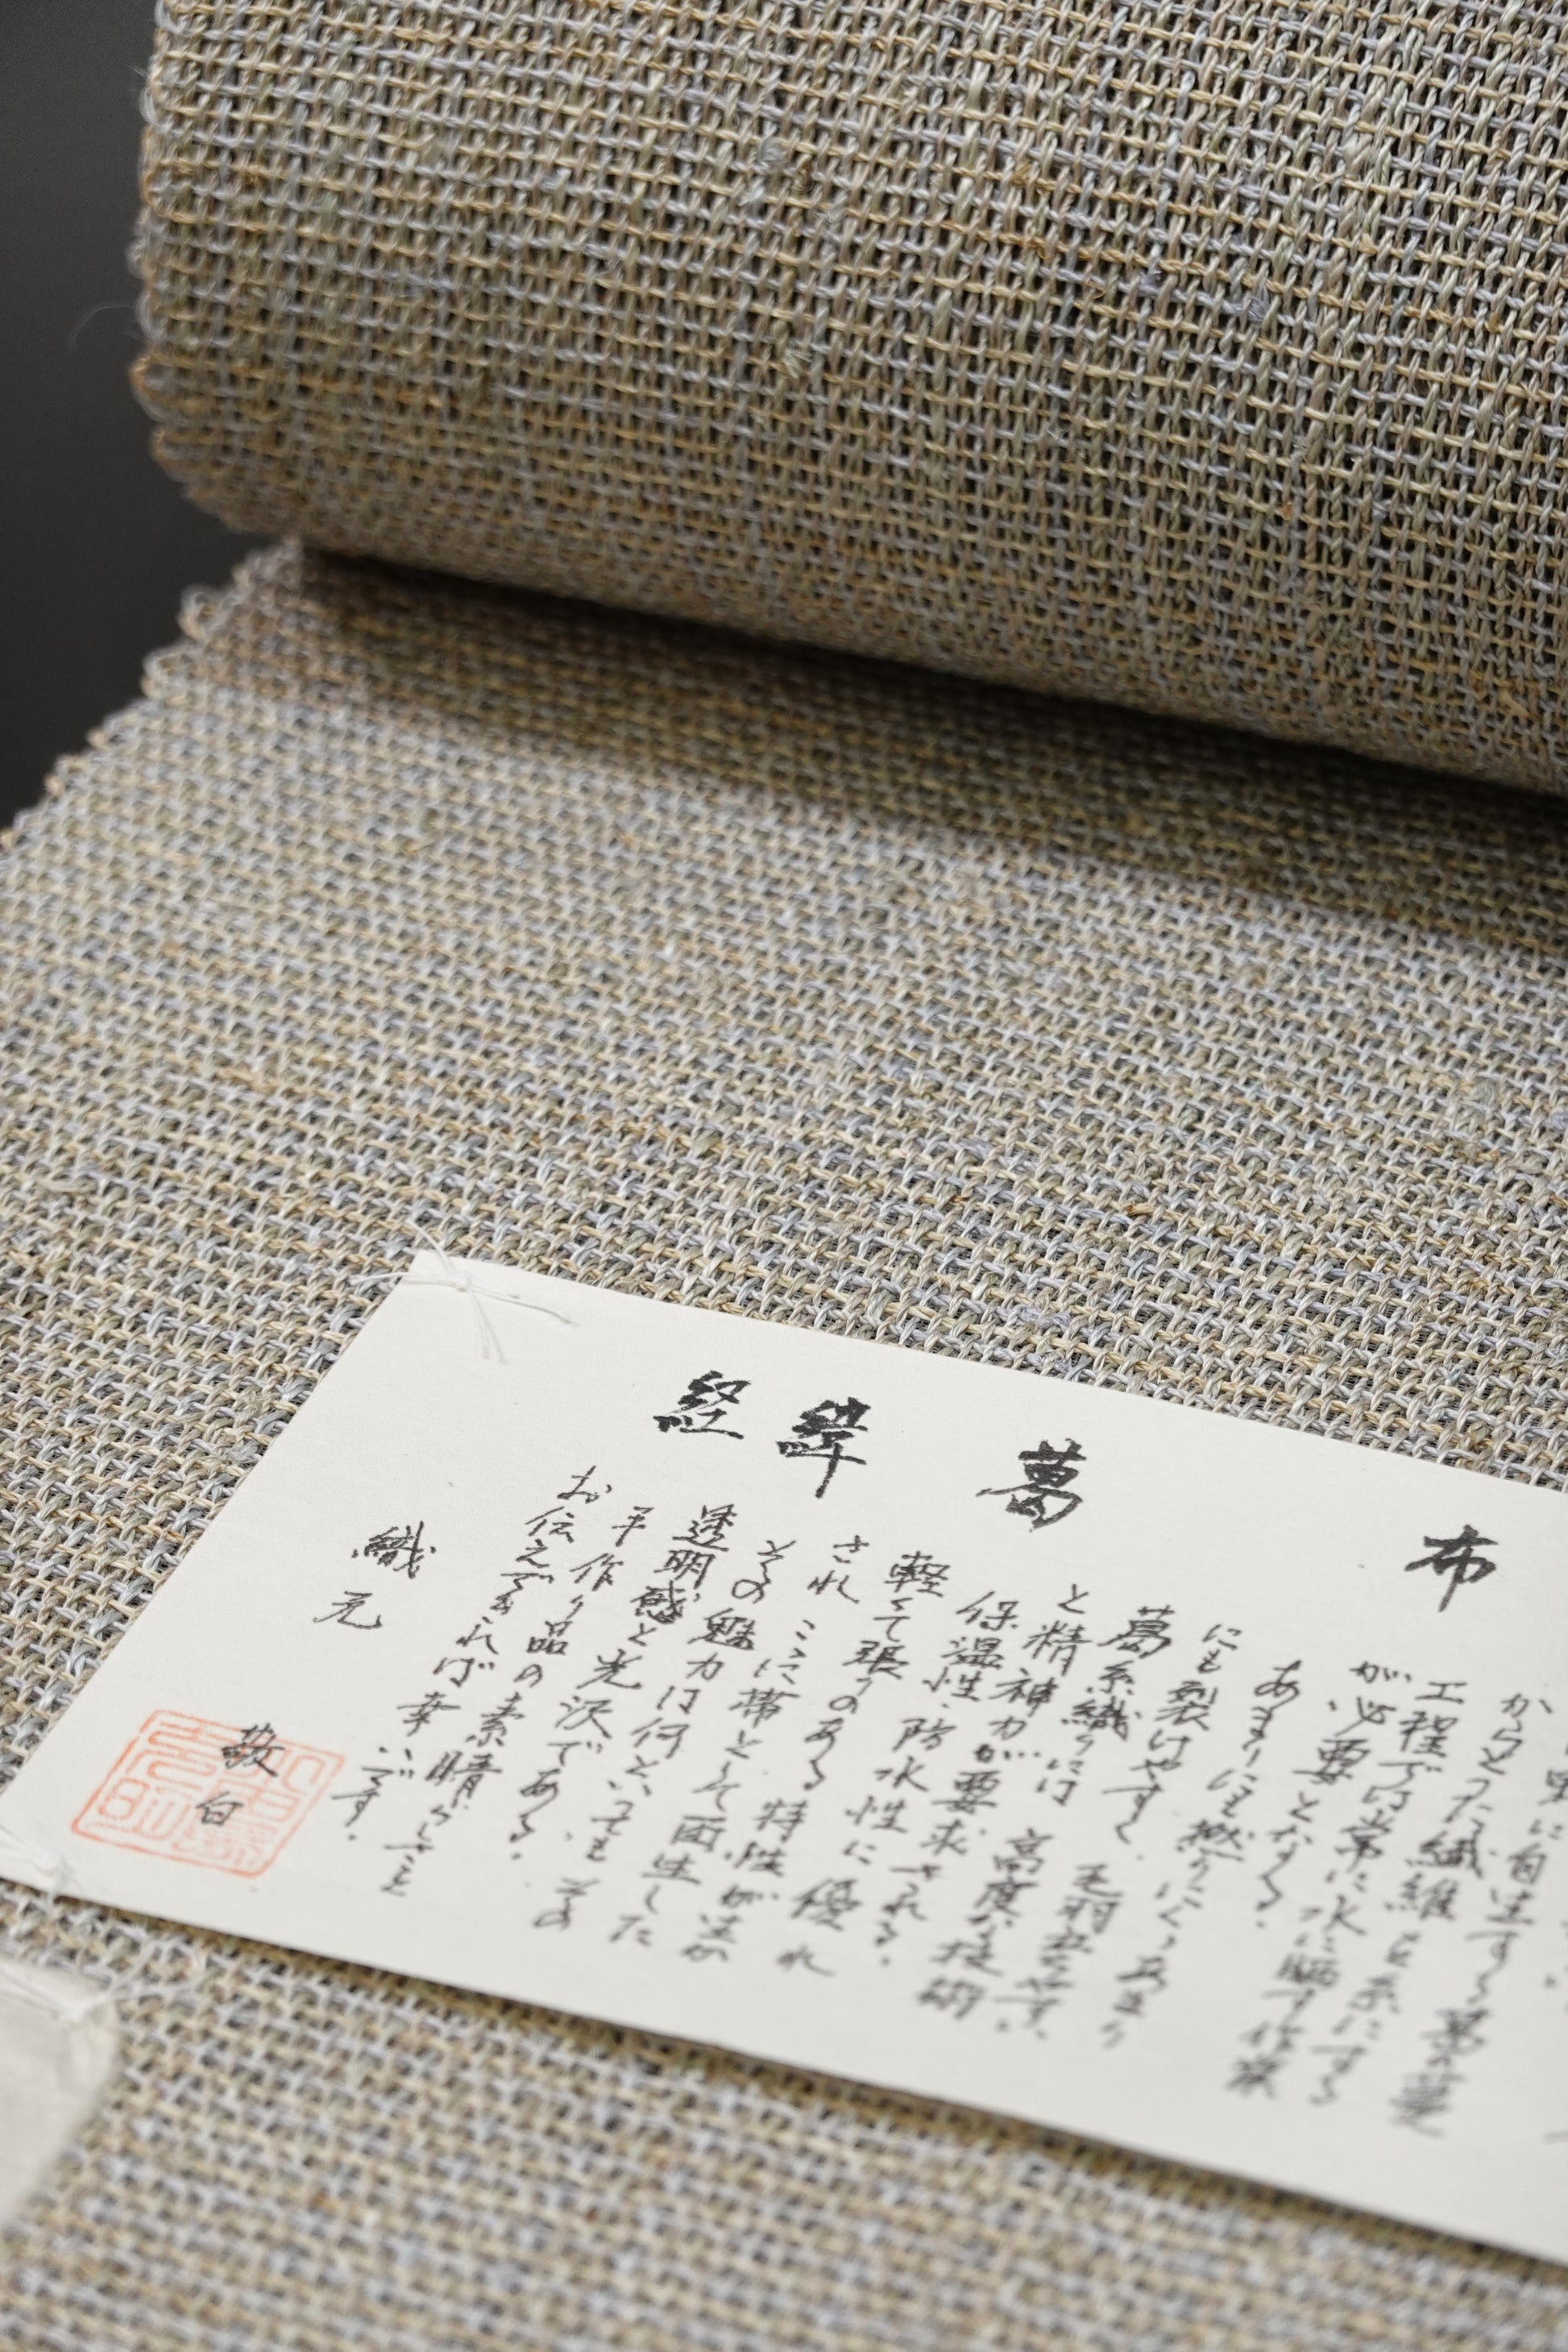 経緯 葛 布
に自生する葛の蔓
からとった繊維を糸にする
工程では常に水に晒す作業
が必要となる。
あまりにも撚りにくくあまり
にも裂けやすく、毛羽立ちやすい
葛糸織りには 高度な技術
と精神力が要求される。
保温性、防水性に優れ
軽くて張りのある特性が活か
され ここに帯として再生した
その魅力は何といっても その
透明感と光沢である。
手作り品の素晴らしさを
お伝えできれば幸いです。
織元
敬白